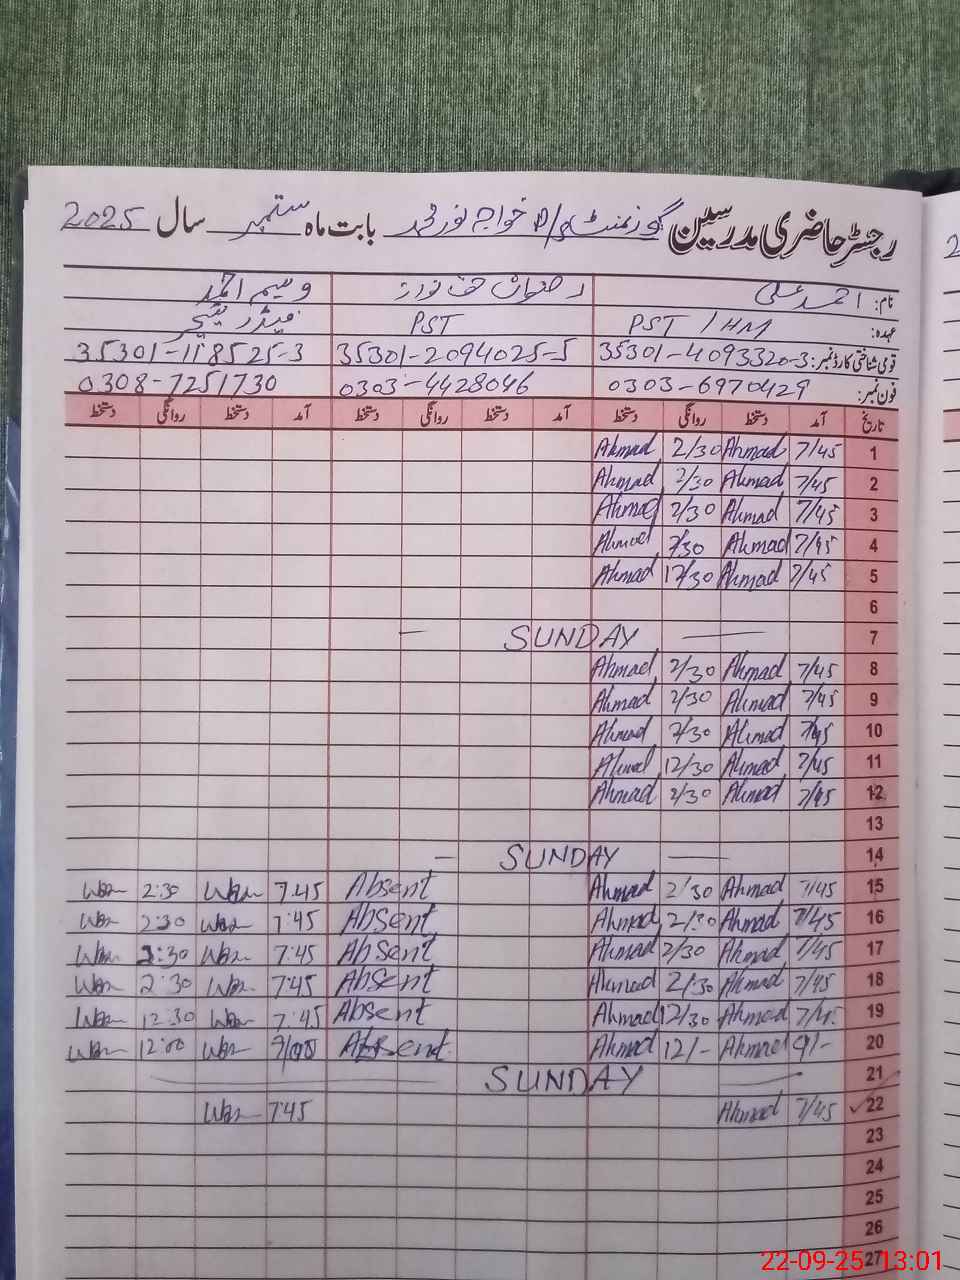 رجسٹر حاضری مدرسین گورنمنٹ P/S خواجہ نور محمد بابت ماہ ستمبر سال 2025
نام: احمد علی رضوان حق نواز وسیم احمد
عہدہ: PST / HM PST فیڈر ٹیچر
قومی شناختی کارڈ نمبر: 35301-4093320-3 35301-2094025-5 35301-118525-3
فون نمبر: 0303-6970429 0303-4428046 0308-7251730
تاریخ آمد دستخط روانگی دستخط آمد دستخط روانگی دستخط آمد دستخط روانگی دستخط
1 7/45 Ahmad 2/30 Ahmad
2 7/45 Ahmad 2/30 Ahmad
3 7/45 Ahmad 2/30 Ahmad
4 7/45 Ahmad 2/30 Ahmad
5 7/45 Ahmad 12/30 Ahmad
6
7 — SUNDAY —
8 7/45 Ahmad 2/30 Ahmad
9 7/45 Ahmad 2/30 Ahmad
10 7/45 Ahmad 2/30 Ahmad
11 7/45 Ahmad 12/30 Ahmad
12 7/45 Ahmad 2/30 Ahmad
13
14 — SUNDAY —
15 7/45 Ahmad 2/30 Ahmad Absent 7.45 2:30
16 7/45 Ahmad 2/30 Ahmad Absent 7:45 2:30
17 7/45 Ahmad 2/30 Ahmad Absent 7:45 2:30
18 7/45 Ahmad 2/30 Ahmad Absent 7:45 2:30
19 7/45 Ahmad 12/30 Ahmad Absent 7:45 12:30
20 9/- Ahmad 12/- Ahmad Absent 12:00
21 — SUNDAY —
22 7/45 Ahmad 7:45
23
24
25
26
27
22-09-25 13:01